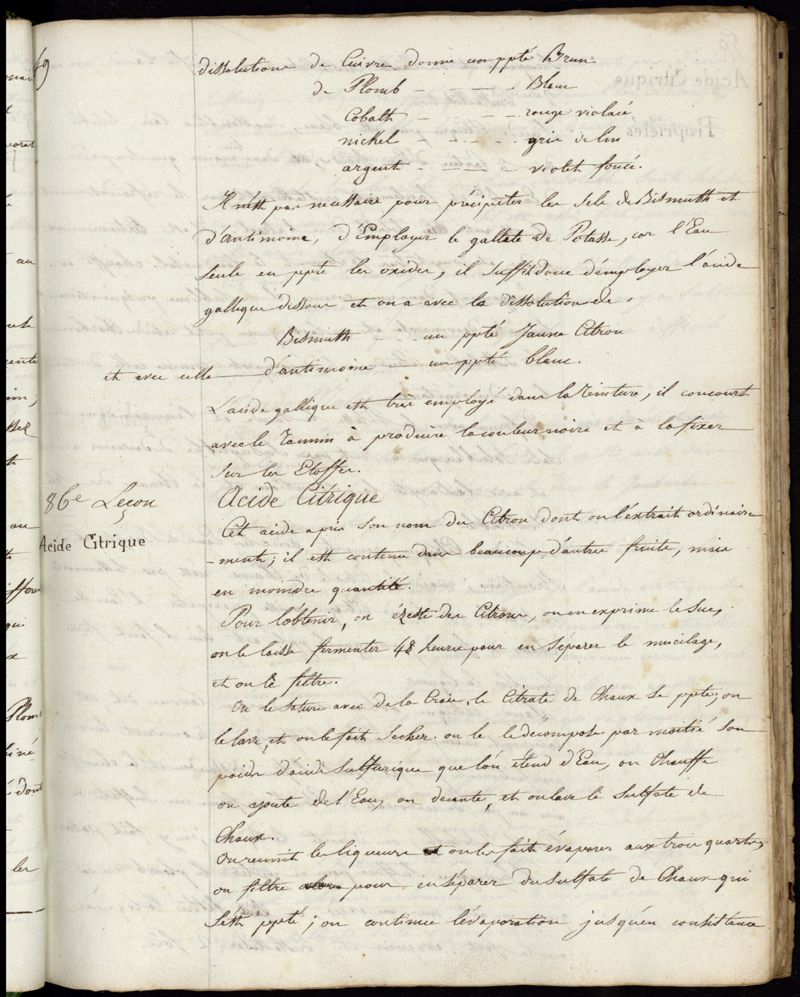 69
dissolution de Cuivre donne un ppté Brun
de Plomb - - - Blanc
Cobalt - - - rouge violacé
nickel - - - gris de lin
argent - - - violet foncé.
Il n'est pas necessaire pour précipiter les Sels de Bismuth et
d'antimoine, d'Employer le gallate de Potasse, car l'Eau
Seule en ppte les oxides, il Suffit donc d'employer l'acide
gallique dissous et on a avec la dissolution de,
Bismuth - un ppté Jaune Citron
et avec celle d'antimoine un ppté blanc.
L'acide gallique est très employé dans la teinture, il concourt
avec le Tannin à produire la couleur noire et à la fixer
Sur les Etoffes.
86e Leçon
Acide Citrique
Acide Citrique
Cet acide a pris Son nom du Citron dont on l'extrait ordinaire
-ment; il est contenu dans beaucoup d'autres fruits, mais
en moindre quantité.
Pour l'obtenir, on des Citrons, on en exprime le Suc,
on le laisse fermenter 48 heures pour en Séparer le mucilage,
et on le filtre.
On le Sature avec de la Craie, le Citrate de Chaux Se ppte; on
le lave, et on le fait Secher. on le décompose par moitié Son
poids d'acide Sulfurique que l'on étend d'Eau, on Chauffe
on ajoute de l'Eau, on decante, et on lave le Sulfate de
Chaux.
On reunit les liqueurs et on les fait évaporer aux trois quarts,
on filtre pour en Séparer du Sulfate de Chaux qui
S'est ppté; on continue l'évaporation jusqu'en consistance